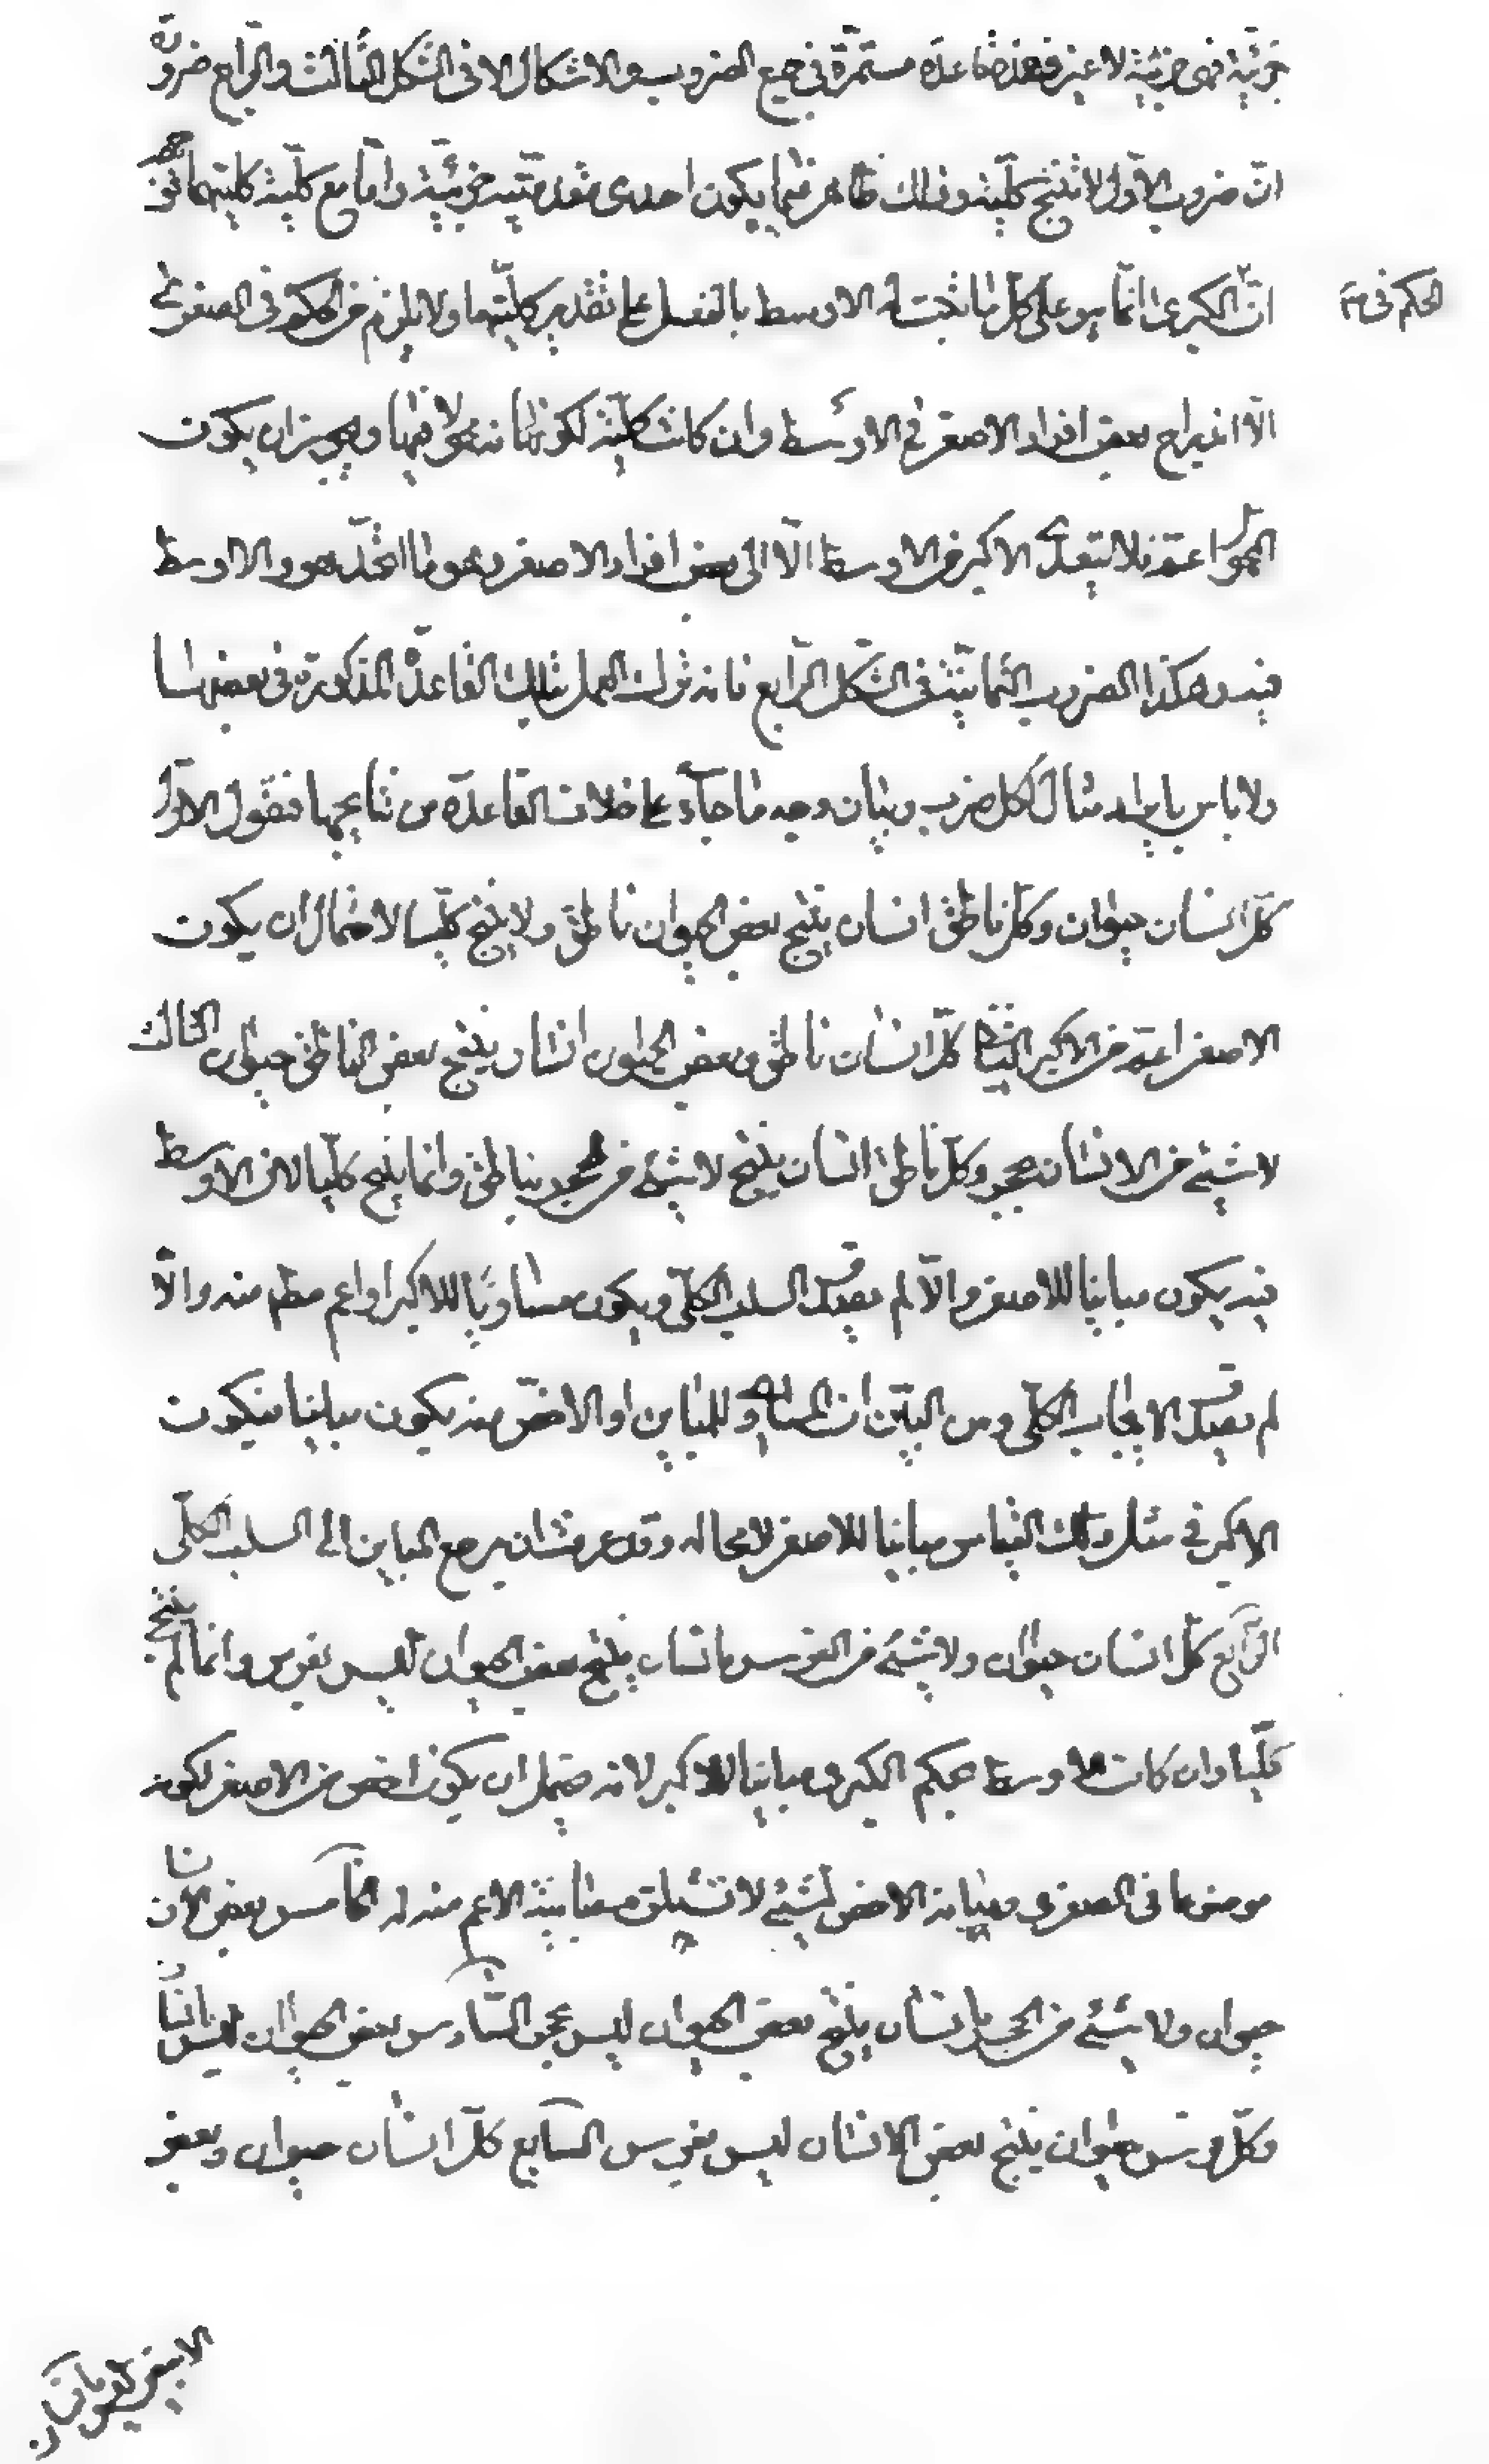 جزئية فهى جزئية لا غير فهذه قاعدة مستمرّة فى جميع الضروب والاشكال الا فى الشكل الثالث والرّابع ضرورة
انّ ضروب الاوّل لا تنتج كليّة وذلك ظاهر فيما يكون احدى مقدمتيه جزئيّة وامّا مع كليّة كلتيهما
انّ الكبرى انّما هو على كلّ ما ثبت له الاوسط بالفعل على تقدير كليّتها ولا يلزم من الحكم فى الصغرى
الحكم فى
الّا اندراج بعض افراد الاصغر فى الاوسط وان كانت كليّة لكونها محمولا فيها ويجوز ان يكون
المحمول اعمّ فلا يتعدّى الاكبر من الاوسط الّا الى بعض افراد الاصغر وهو ما اتّحد هو والاوسط
فيه وهكذا الضروب الثمانيّة فى الشكل الرّابع فانه ترك العمل بتلك القاعدة المذكورة فى بعضها
ولا باس بايراد مثال لكل ضرب وبيان وجه ما جاء على خلاف القاعدة من نتايجها فنقول الاوّل
كلّ انسان حيوان وكلّ ناطق انسان ينتج بعض الحيوان ناطق ولا ينتج كليّا لاحتمال ان يكون
الاصغر اعمّ من الاكبر الثانى كلّ انسان ناطق وبعض الحيوان انسان ينتج بعض الناطق حيوان الثالث
لا شىء من الانسان بحجر وكلّ ناطق انسان ينتج لا شىء من الحجر بناطق وانما ينتج كليّا لان الاوسط
فيه يكون مباينا للاصغر والّا لم يصدق السلب الكلّى ويكون مساويا للاكبر او اعم مطم منه والّا
لم يصدق الايجاب الكلّى ومن البيّن ان المساوى للمباين او الاخصّ منه يكون مباينا فيكون
الاكبر فى مثل ذلك القياس مباينا للاصغر لا محاله وقد عرفت ان مرجع المباين الى السلب الكلّى
الرّابع كلّ انسان حيوان ولا شىء من الفرس بانسان ينتج بعض الحيوان ليس بفرس وانما لم ينتج
كليّا وان كانت الاوسط بحكم الكبرى مباينا للاكبر لانه يحتمل ان يكون اخص من الاصغر لكونه
موضوعا فى الصغرى ومباينة الاخص لشىء لا تستلزم مباينة الاعم منه له الخامس بعض الانسان
حيوان ولا شىء من الحجر بانسان ينتج بعض الحيوان ليس بحجر السّادس بعض الحيوان ليس بانسان
وكلّ فرس حيوان ينتج بعض الانسان ليس بفرس السّابع كلّ انسان حيوان وبعض